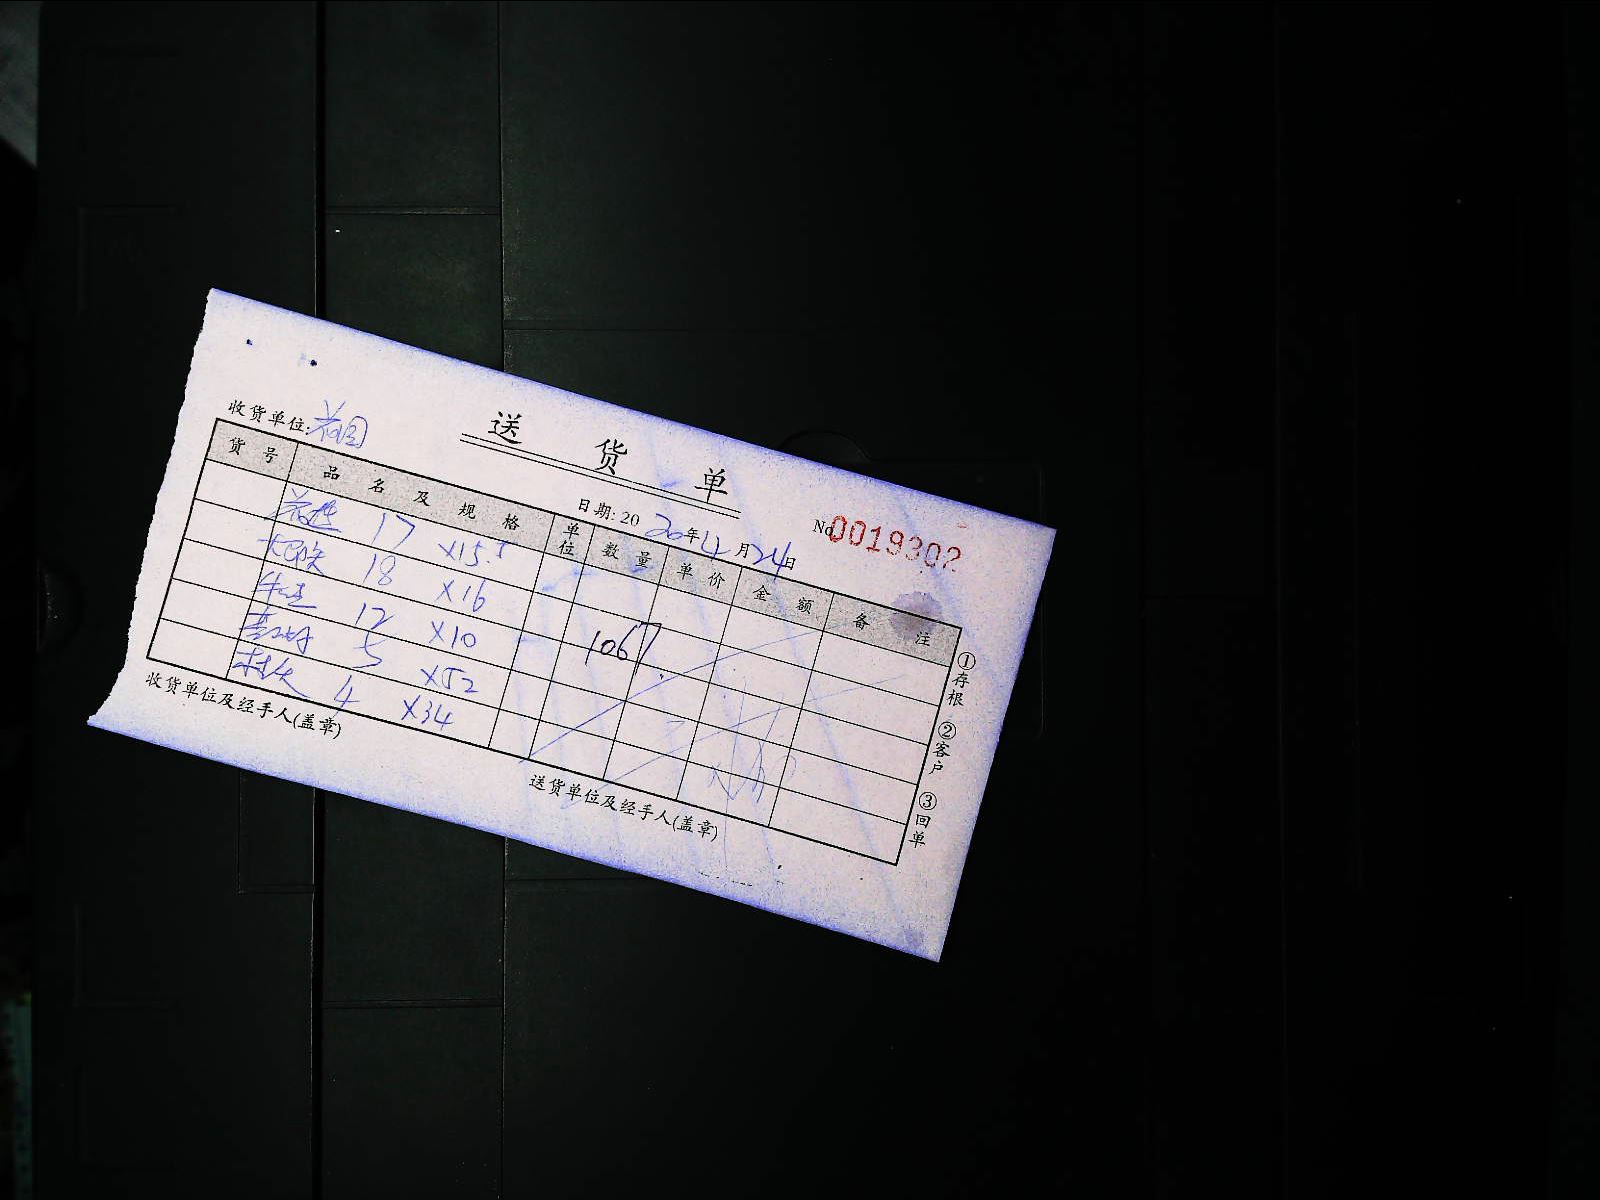 送货单
收货单位:
日期: 2020年4月24日
No 0019302
货号 品名及规格 单位 数量 单价 金额 备注
17 ×15.5
18 ×16
12 ×10
1067
5 ×52
4 ×34
收货单位及经手人(盖章)
送货单位及经手人(盖章)
①存根 ②客户 ③回单